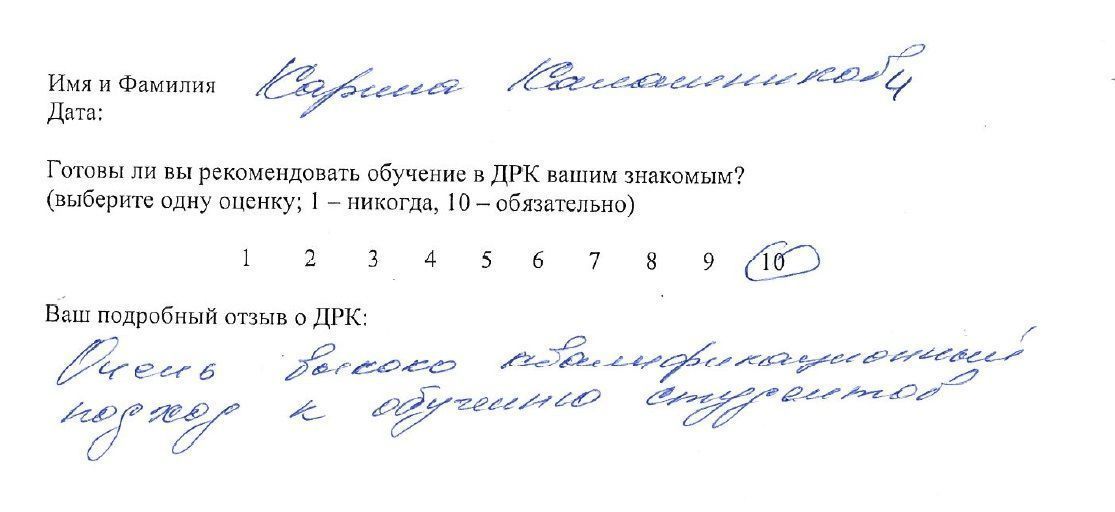 Имя и Фамилия Карина
Дата:
Готовы ли вы рекомендовать обучение в ДРК вашим знакомым?
(выберите одну оценку; 1 – никогда, 10 – обязательно)
1 2 3 4 5 6 7 8 9 10
Ваш подробный отзыв о ДРК:
Очень высоко квалификационный
подход к обучению студентов